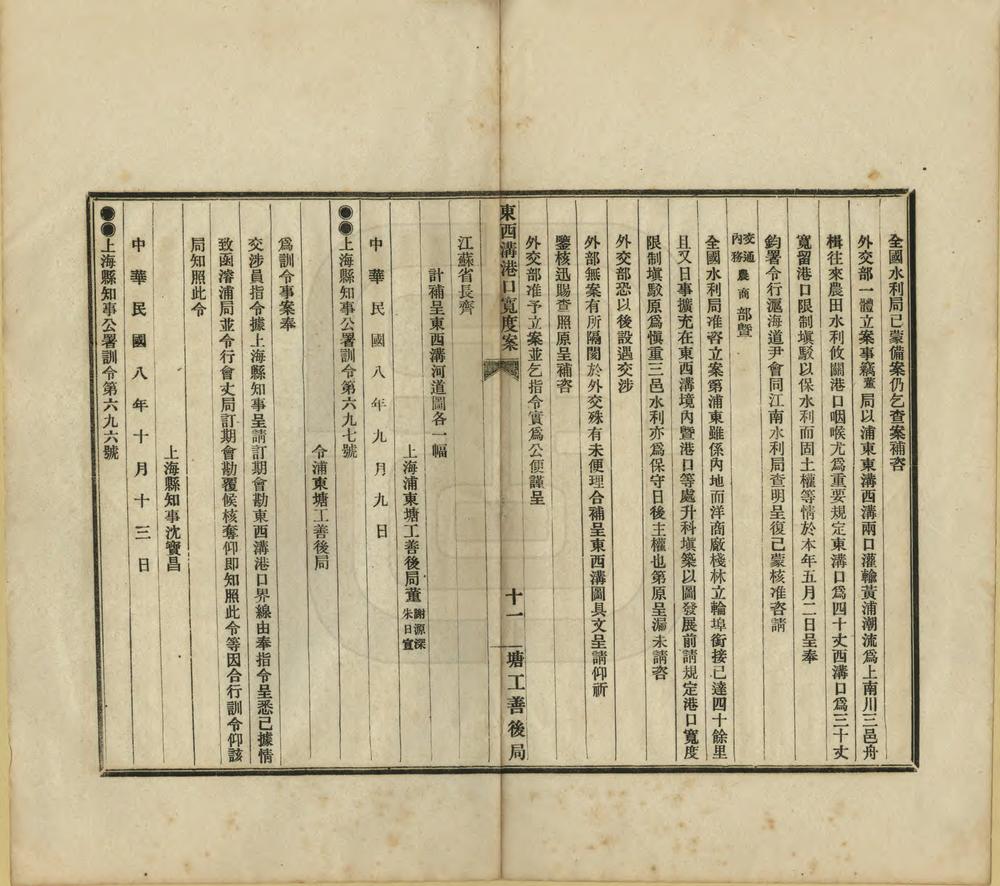 全國水利局已蒙備案仍乞查案補咨
外交部一體立案事竊董局以浦東東溝西溝兩口灌輸黃浦潮流爲上南川三邑舟
楫往來農田水利攸關港口咽喉尤爲重要規定東溝口爲四十丈西溝口爲三十丈
寬留港口限制塡駁以保水利而固土權等情於本年五月二日呈奉
鈞署令行滬海道尹會同江南水利局查明呈復已蒙核准咨請
內務交通農商部暨
全國水利局准咨立案第浦東雖係內地而洋商廠棧林立輪埠銜接已達四十餘里
且又日事擴充在東西溝境內暨港口等處升科塡築以圖發展前請規定港口寬度
限制塡駁原爲愼重三邑水利亦爲保守日後主權也第原呈漏未請咨
外交部恐以後設遇交涉
外部無案有所隔閡於外交殊有未便理合補呈東西溝圖具文呈請仰祈
鑒核迅賜查照原呈補咨
外交部准予立案並乞指令實爲公便謹呈
東西溝港口寬度案
十一
塘工善後局
江蘇省長齊
計補呈東西溝河道圖各一幅
上海浦東塘工善後局董謝源深朱日宣
中華民國八年九月九日
●●上海縣知事公署訓令第六九七號
令浦東塘工善後局
爲訓令事案奉
交涉員指令據上海縣知事呈請訂期會勘東西溝港口界線由奉指令呈悉已據情
致函濬浦局並令行會丈局訂期會勘覆候核奪仰即知照此令等因合行訓令仰該
局知照此令
上海縣知事沈寶昌
中華民國八年十月十三日
●●上海縣知事公署訓令第六九六號